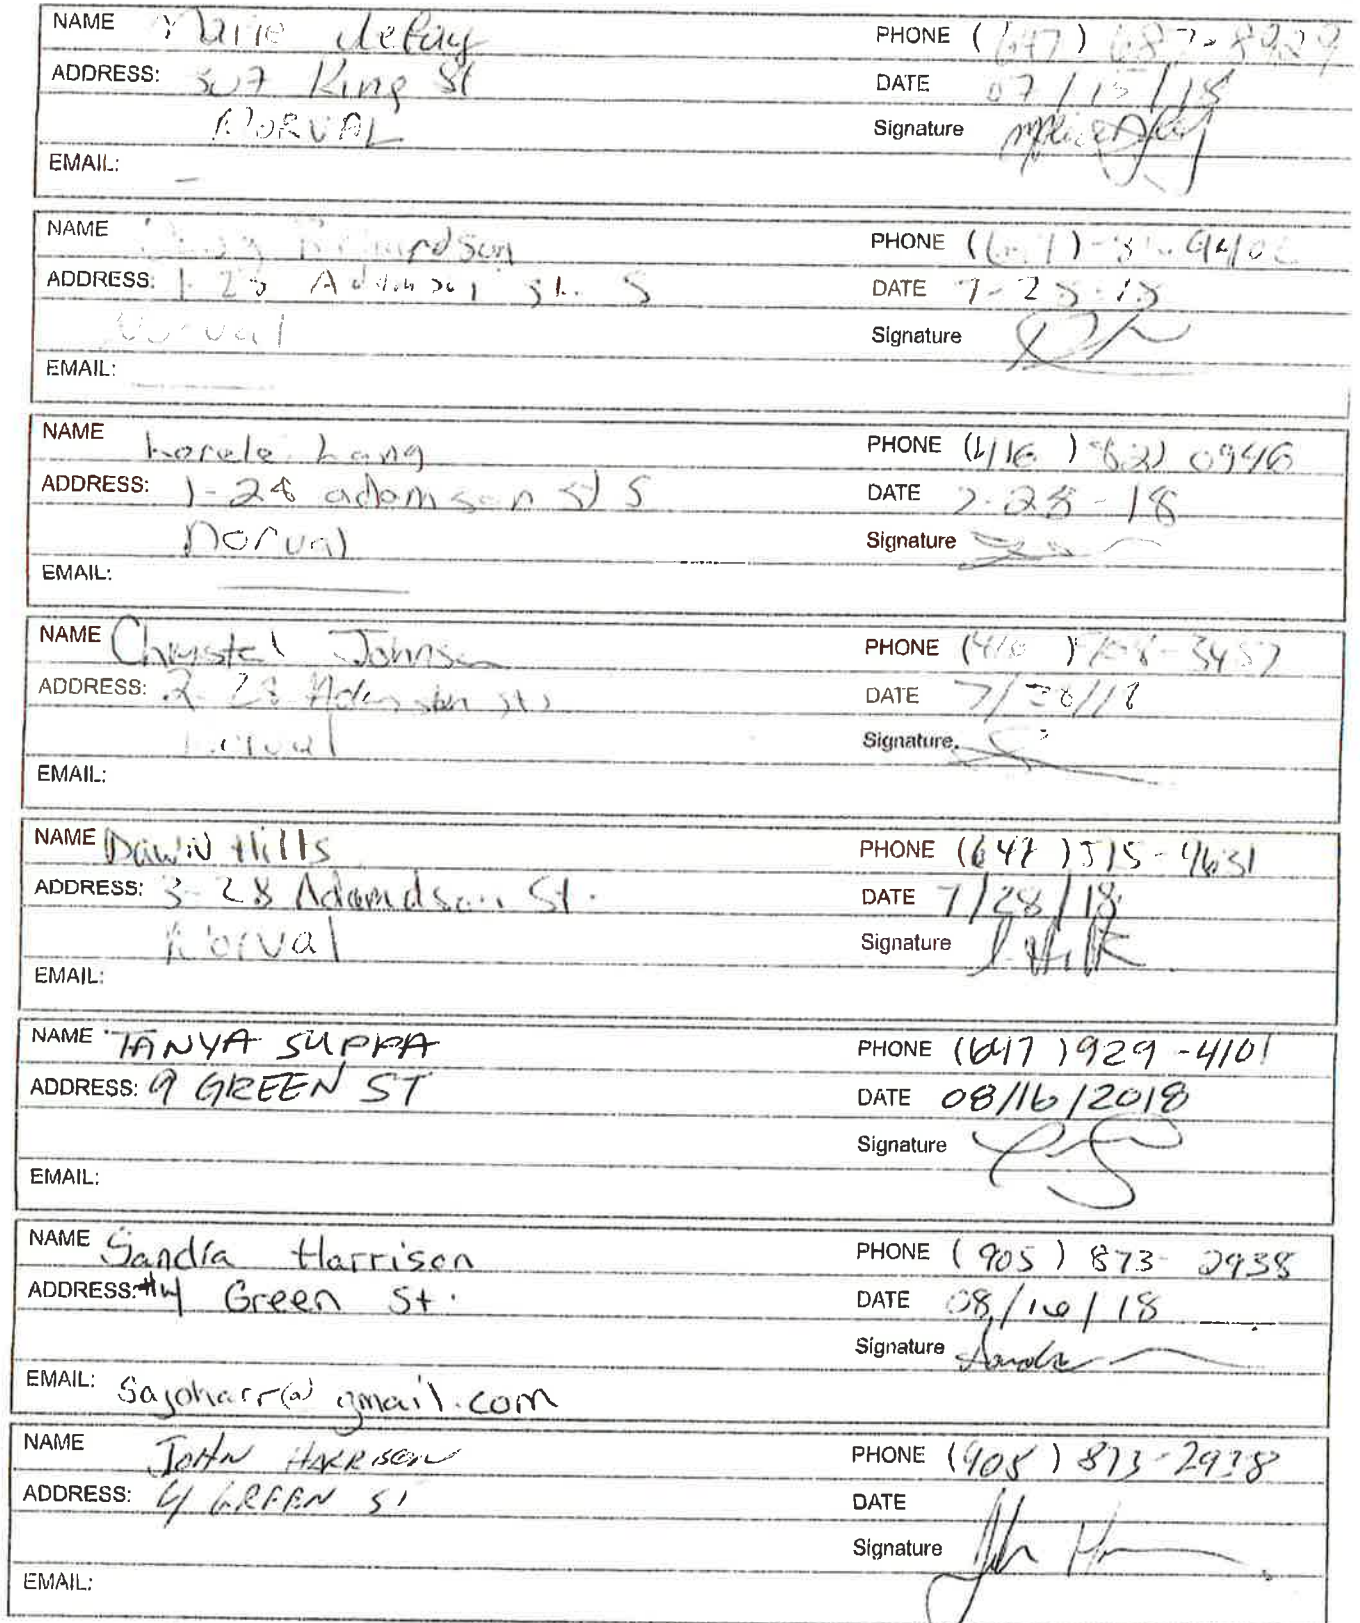 NAME Marie
PHONE (647) 687-8929
ADDRESS: 307 King St
DATE 07/15/18
NORVAL
Signature
EMAIL: —
NAME Richardson
PHONE
ADDRESS: 1-28 Adamson St. S
DATE 7-28-18
Norval
Signature
EMAIL:
NAME Lang
PHONE (416) 821 0946
ADDRESS: 1-28 adamson St S
DATE 7-28-18
Norval
Signature
EMAIL:
NAME Christel Johnson
PHONE (416) 3457
ADDRESS: 2-28 Adamson St S
DATE 7/28/18
Norval
Signature
EMAIL:
NAME Dawn Hills
PHONE (647) 515-4631
ADDRESS: 3-28 Adamdson St.
DATE 7/28/18
Norval
Signature
EMAIL:
NAME TANYA SUPPA
PHONE (647) 929-4101
ADDRESS: 9 GREEN ST
DATE 08/16/2018
Signature
EMAIL:
NAME Sandra Harrison
PHONE (905) 873-2938
ADDRESS: #4 Green St.
DATE 08/16/18
Signature
EMAIL: sajoharr@gmail.com
NAME JOHN HARRISON
PHONE (905) 873-2938
ADDRESS: 4 GREEN ST
DATE
Signature
EMAIL: